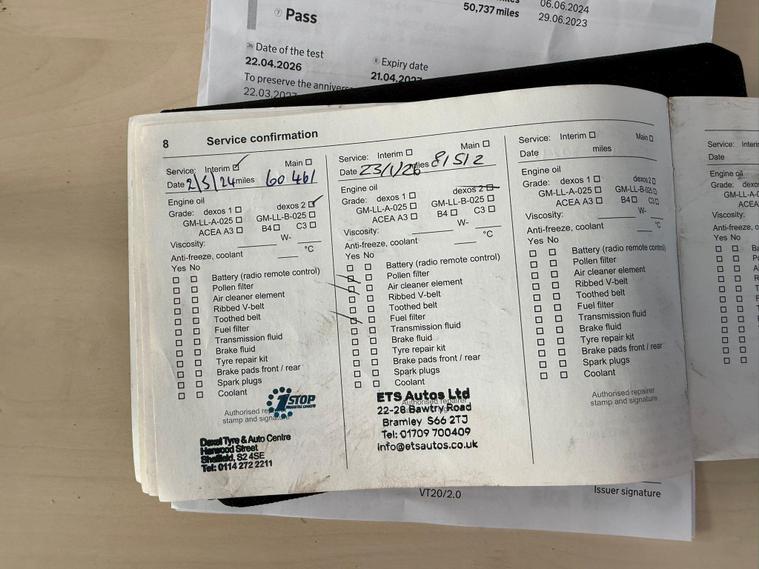 06.06.2024
50,737 miles
29.06.2023
Pass
Date of the test
22.04.2026
Expiry date
21.04.202
To preserve the annivers
22.03.202
8 Service confirmation
Service: Interim Main
Date 2/5/24 miles 60 461
Engine oil
Grade: dexos 1 dexos 2
GM-LL-A-025 GM-LL-B-025
ACEA A3 B4 C3
Viscosity: W-
Anti-freeze, coolant °C
Yes No
Battery (radio remote control)
Pollen filter
Air cleaner element
Ribbed V-belt
Toothed belt
Fuel filter
Transmission fluid
Brake fluid
Tyre repair kit
Brake pads front / rear
Spark plugs
Coolant
Authorised
stamp and
1 STOP
Dexel Tyre & Auto Centre
Hanwood Street
Sheffield, S2 4SE
Tel: 0114 272 2211
Service: Interim Main
Date 23/1/26 miles 81512
Engine oil
Grade: dexos 1 dexos 2
GM-LL-A-025 GM-LL-B-025
ACEA A3 B4 C3
Viscosity: W-
Anti-freeze, coolant °C
Yes No
Battery (radio remote control)
Pollen filter
Air cleaner element
Ribbed V-belt
Toothed belt
Fuel filter
Transmission fluid
Brake fluid
Tyre repair kit
Brake pads front / rear
Spark plugs
Coolant
ETS Autos Ltd
22-28 Bawtry Road
Bramley S66 2TJ
Tel: 01709 700409
info@etsautos.co.uk
Service: Interim Main
Date miles
Engine oil
Grade: dexos 1 dexos 2
GM-LL-A-025 GM-LL-B-025
ACEA A3 B4 C3
Viscosity: W-
Anti-freeze, coolant °C
Yes No
Battery (radio remote control)
Pollen filter
Air cleaner element
Ribbed V-belt
Toothed belt
Fuel filter
Transmission fluid
Brake fluid
Tyre repair kit
Brake pads front / rear
Spark plugs
Coolant
Authorised repairer
stamp and signature
Service: Interi
Date
Engine oil
Grade: dexos
GM-LL-A-02
ACEA A
Viscosity:
Anti-freeze, coola
Yes No
VT20/2.0
Issuer signature